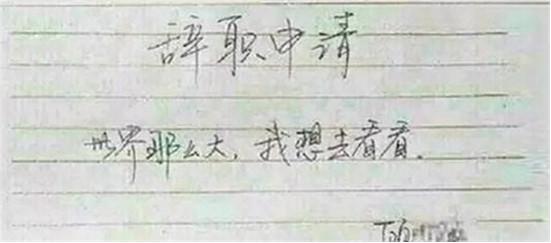 辞职申请
世界那么大，我想去看看．